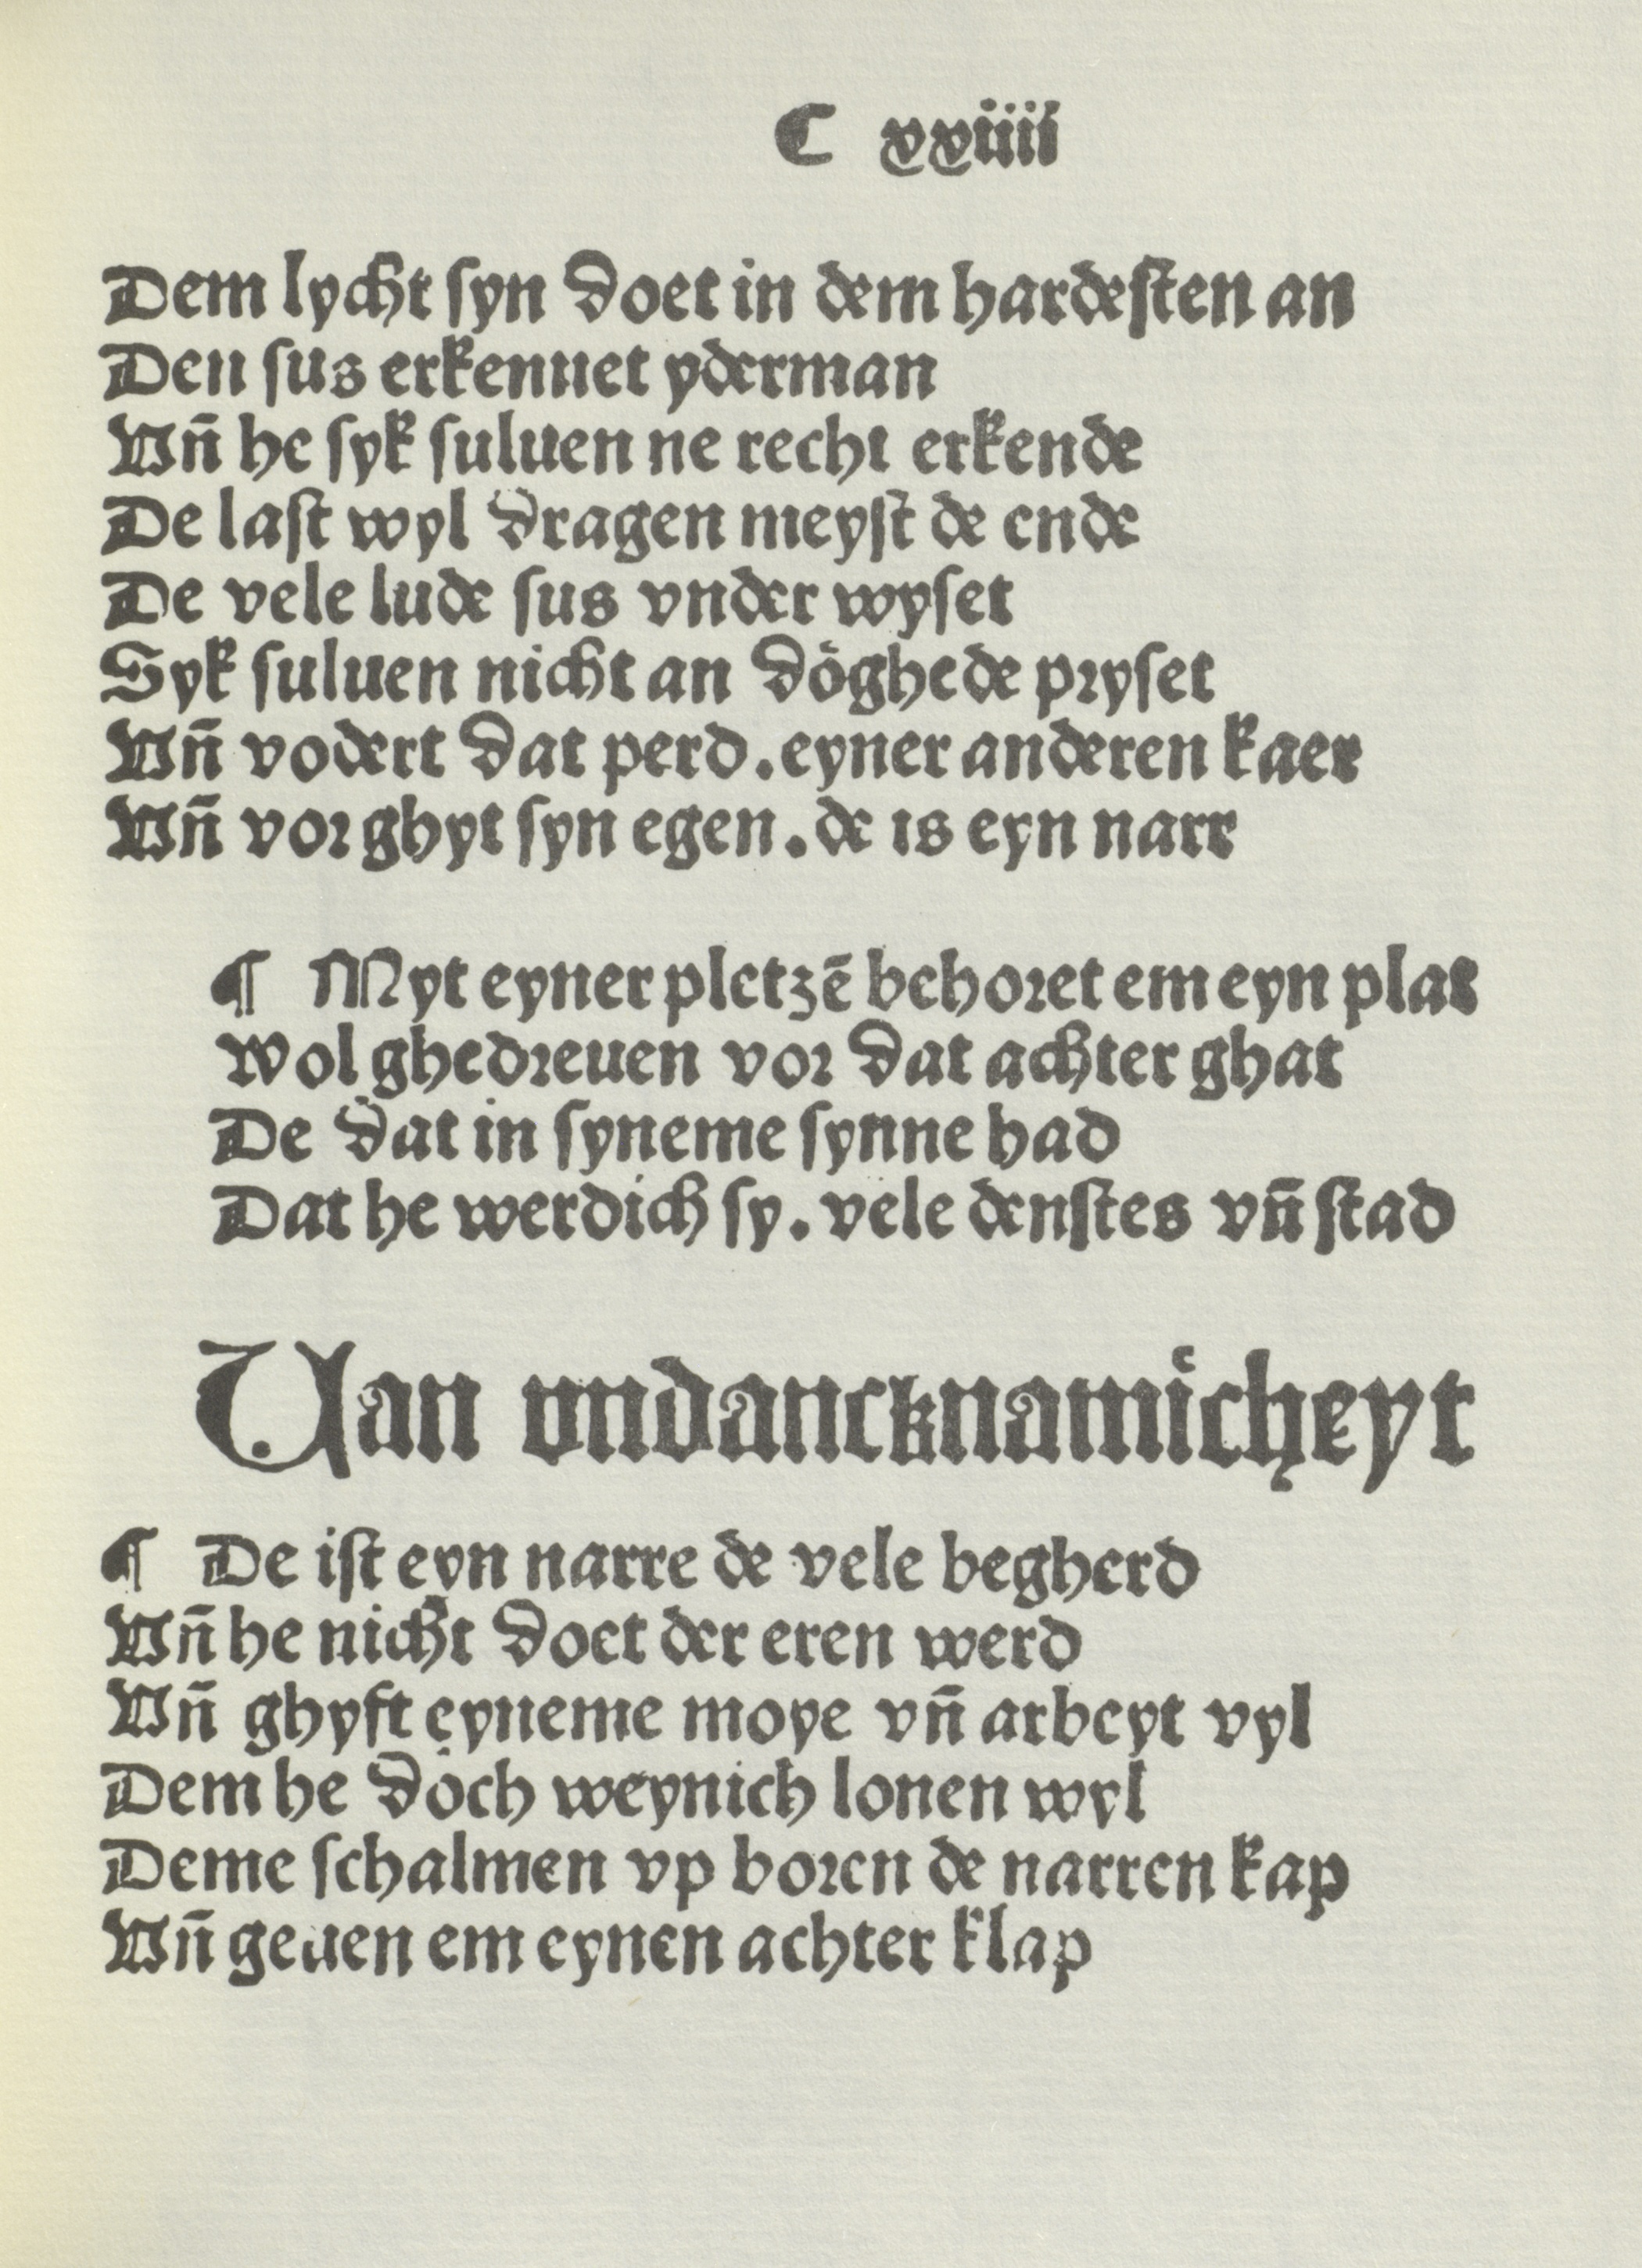 C xxiiii
Dem lycht ſyn doet in dem hardeſten an
Den ſus erkennet yderman
Vñ he ſyk ſuluen ne recht erkende
De laſt wyl dragen meyſt de ende
De vele lude ſus vnder wyſet
Syk ſuluen nicht an döghede pꝛyſet
Vñ vodert dat perd.eyner anderen kaer
Vñ voꝛghyt ſyn egen.de is eyn narr
¶ Myt eyner pletzē behoꝛet em eyn plas
Wol ghedꝛeuen voꝛ dat achter ghat
De dat in ſyneme ſynne had
Dat he werdich ſy.vele denſtes vñ ſtad
Uan vndancknamicheyt
¶ De iſt eyn narre de vele begherd
Vñ he nicht doet der eren werd
Vñ ghyft eyneme moye vñ arbeyt vyl
Dem he doch weynich lonen wyl
Deme ſchalmen vp boꝛen de narren kap
Vñ geuen em eynen achter klap